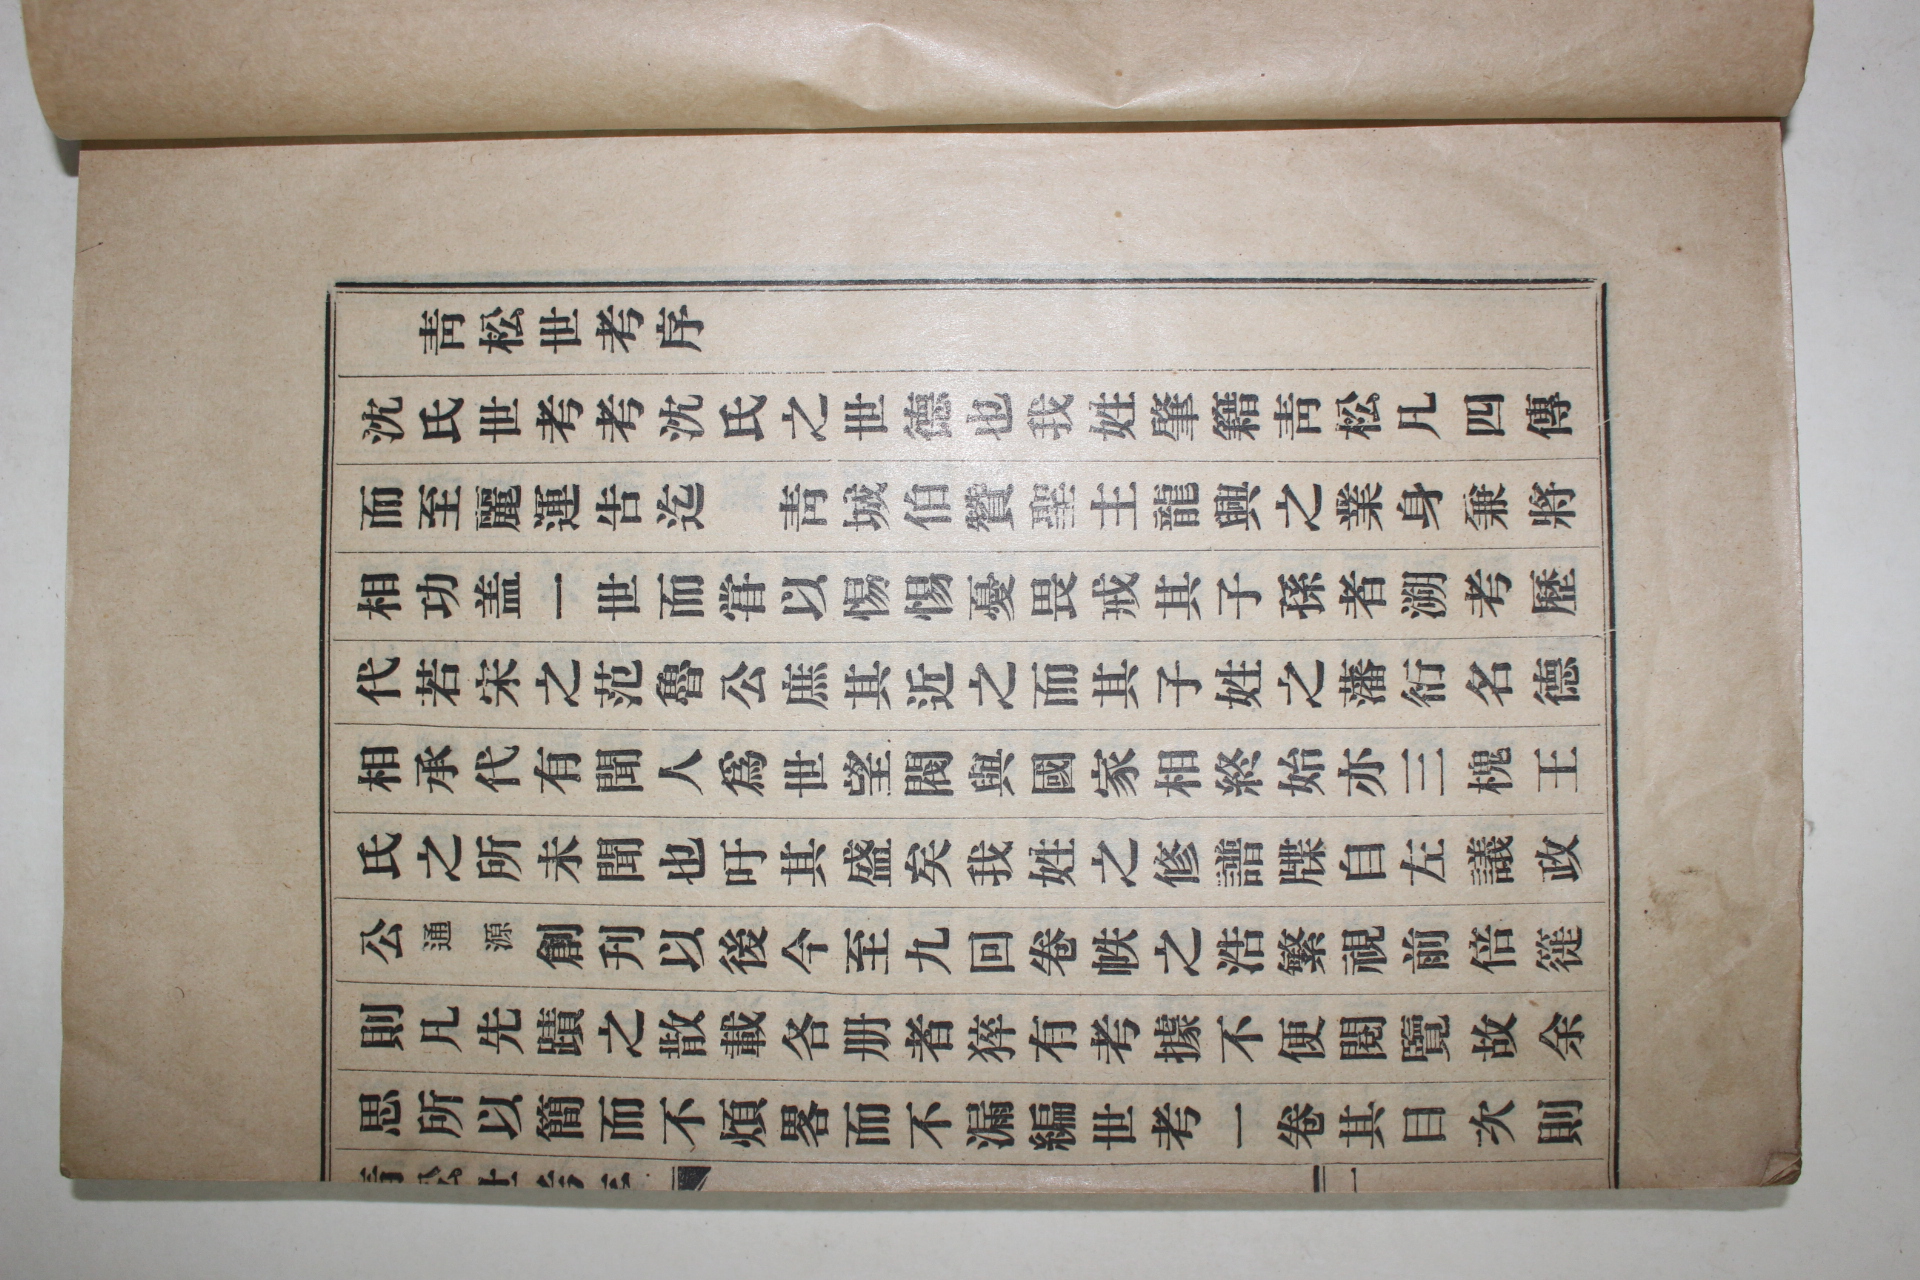 靑松世考序
沈氏世考考沈氏之世德也我姓肇籍靑松凡四傳
而至麗運告迄　靑城伯贊聖主龍興之業身兼將
相功盖一世而嘗以惕惕憂畏戒其子孫者溯考歷
代若宋之范魯公庶其近之而其子姓之藩衍名德
相承代有聞人爲世望閥與國家相終始亦三槐王
氏之所未聞也吁其盛矣我姓之修譜牒自左議政
公通源創刊以後今至九回卷帙之浩繁視前倍蓰
則凡先蹟之散載各册者猝有考據不便閱覽故余
思所以簡而不煩畧而不漏編世考一卷其目次則